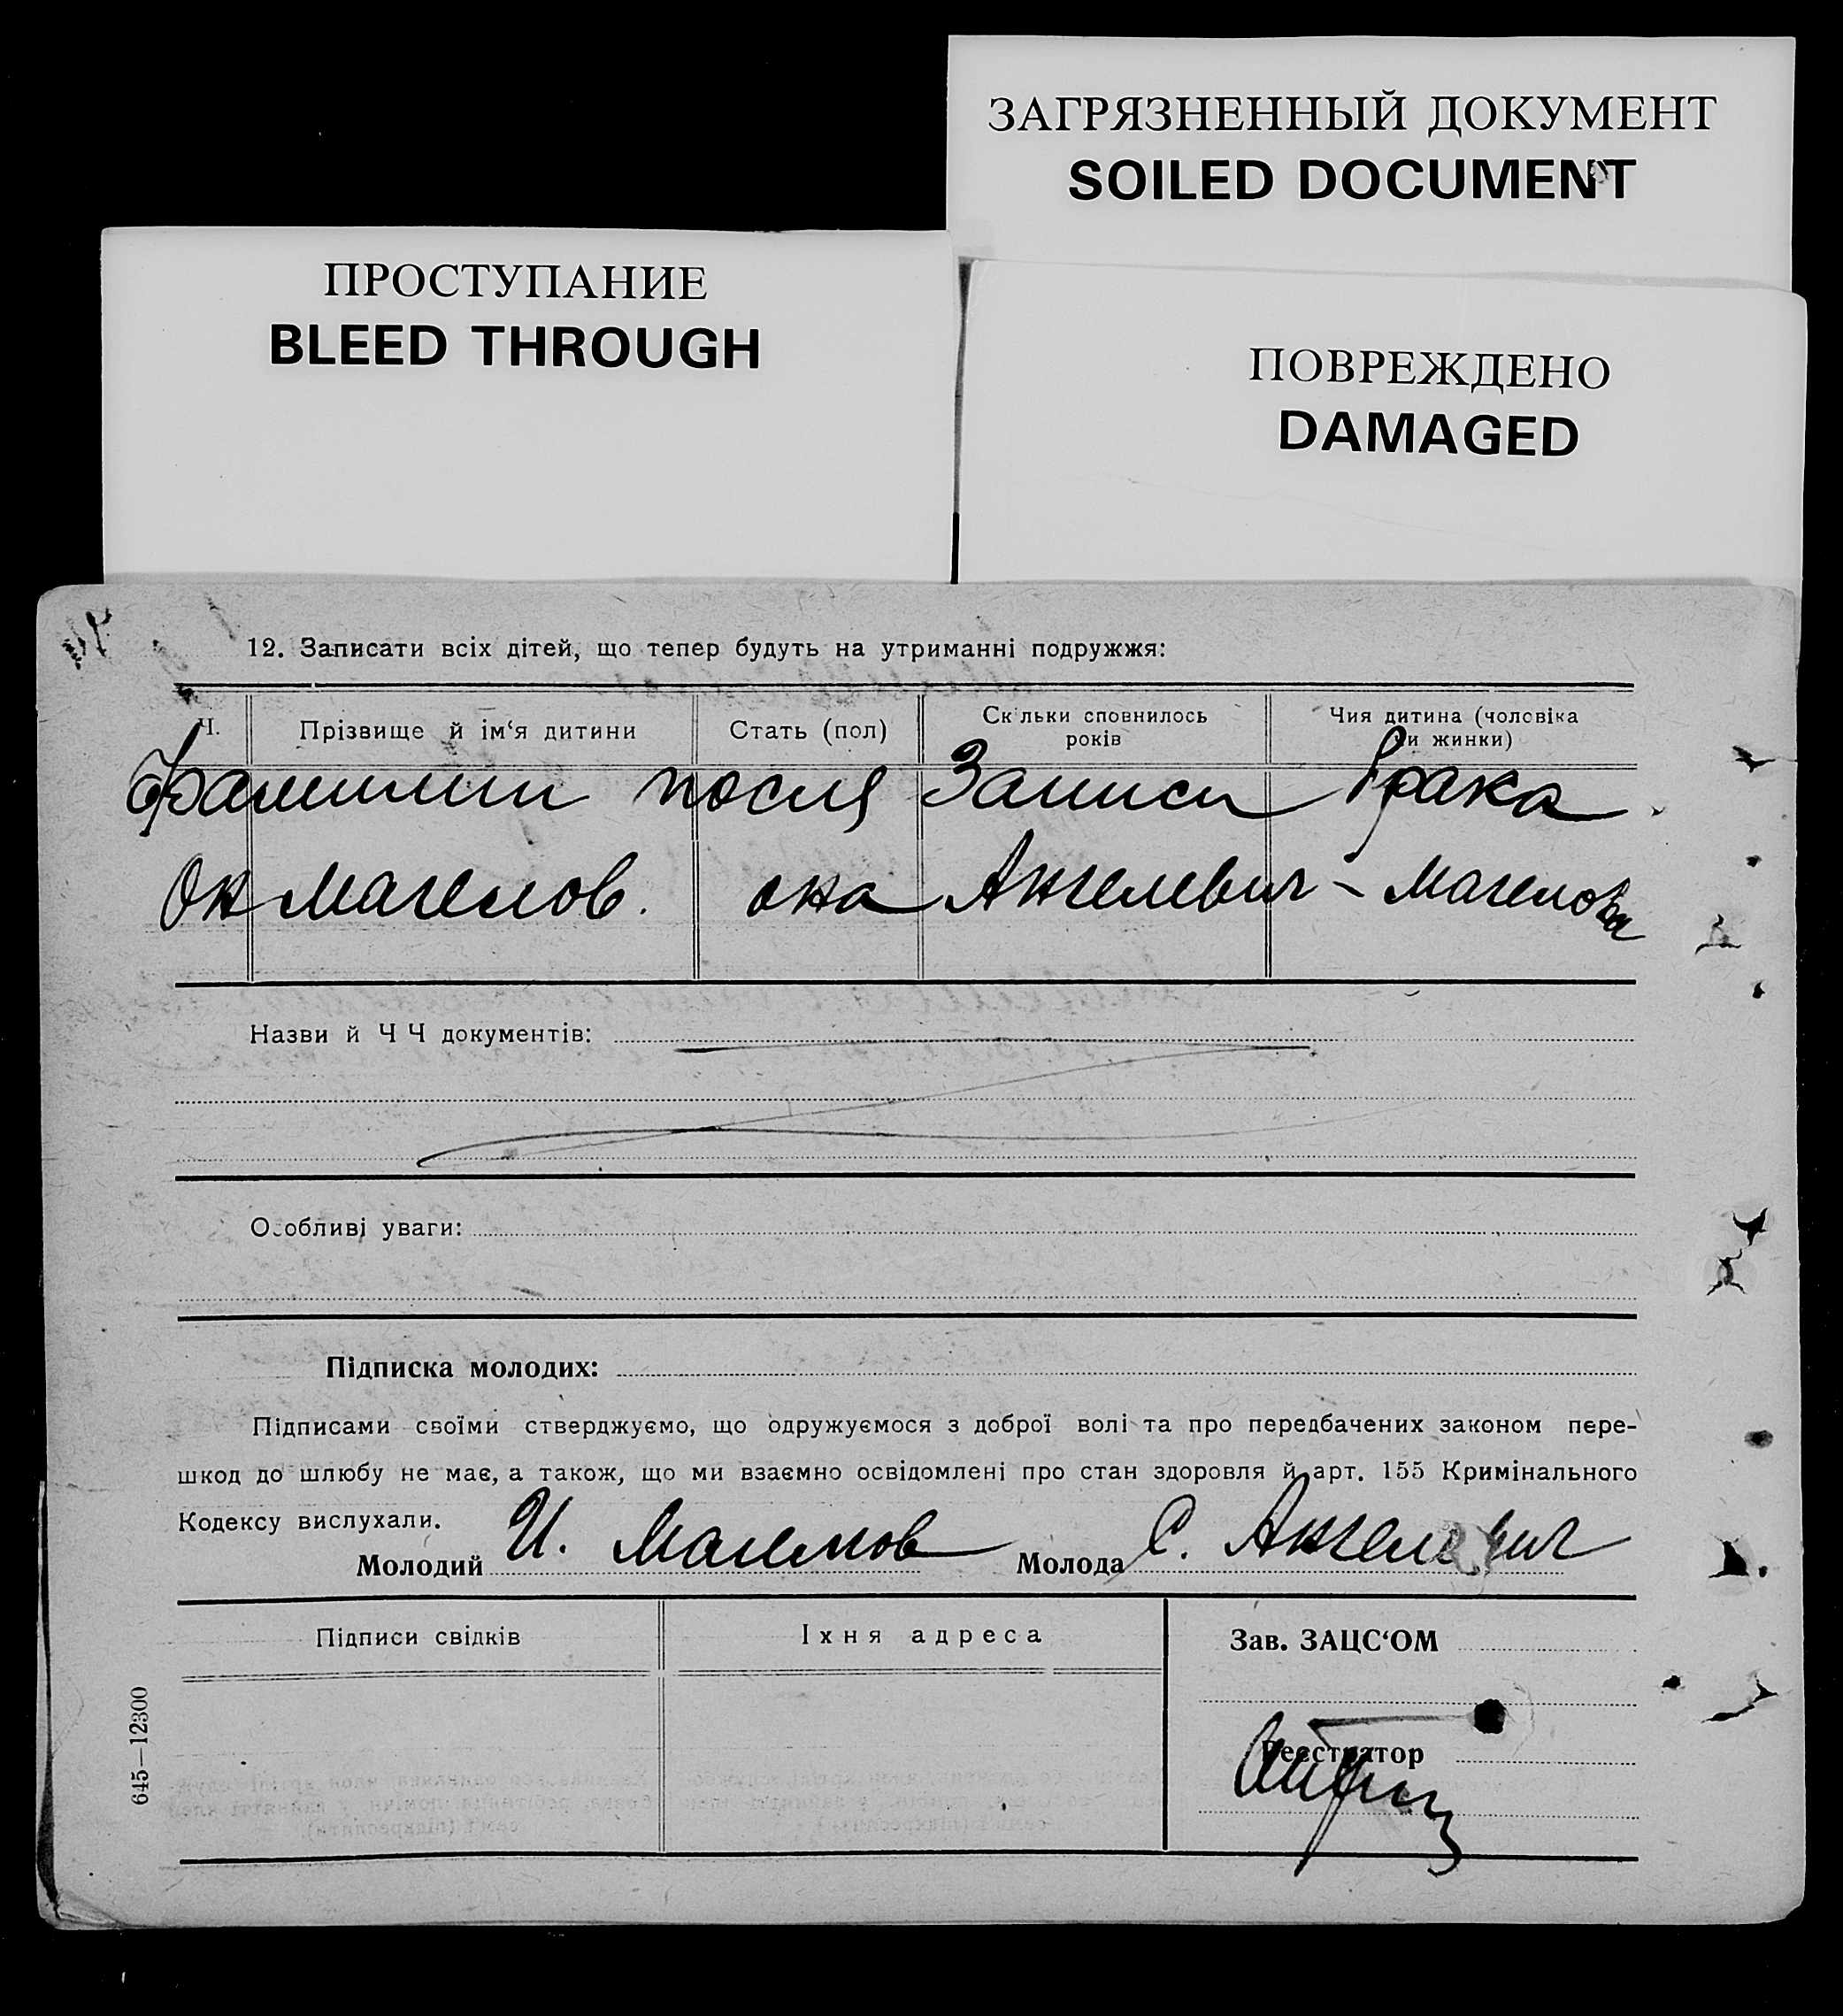 ЗАГРЯЗНЕННЫЙ ДОКУМЕНТ
SOILED DOCUMENT
ПРОСТУПАНИЕ
BLEED THROUGH
ПОВРЕЖДЕНО
DAMAGED
12. Записати всіх дітей, що тепер будуть на утриманні подружжя:
Ч. Прізвище й ім‘я дитини Стать (пол) Скільки сповнилось років Чия дитина (чоловіка чи жинки)
Фамилии после Записи брака
Он Магемов. она Ангелевич - Магемова
Назви й Ч Ч документів:
Особливі уваги:
Підписка молодих:
Підписами своїми стверджуємо, що одружуємося з доброї волі та про передбачених законом пере-
шкод до шлюбу не має, а також, що ми взаємно освідомлені про стан здоровля й арт. 155 Кримінального
Кодексу вислухали.
Молодий И. Магемов Молода С. Ангелевич
Підписи свідків Іхня адреса Зав. ЗАЦС‘ОМ
Реєстратор
645—12300